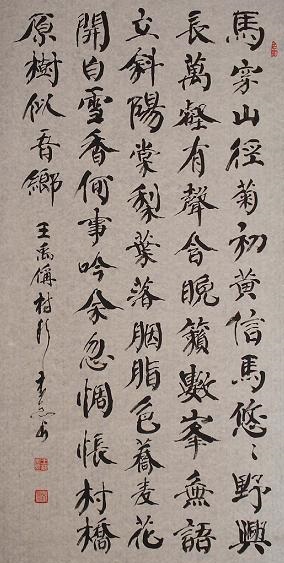 馬穿山徑菊初黃信馬悠々野興
長萬壑有聲含晚籟數峯無語
立斜陽棠梨葉落胭脂色蕎麦花
開白雪香何事吟余忽惆悵村橋
原樹似吾鄉
王禹偁村行